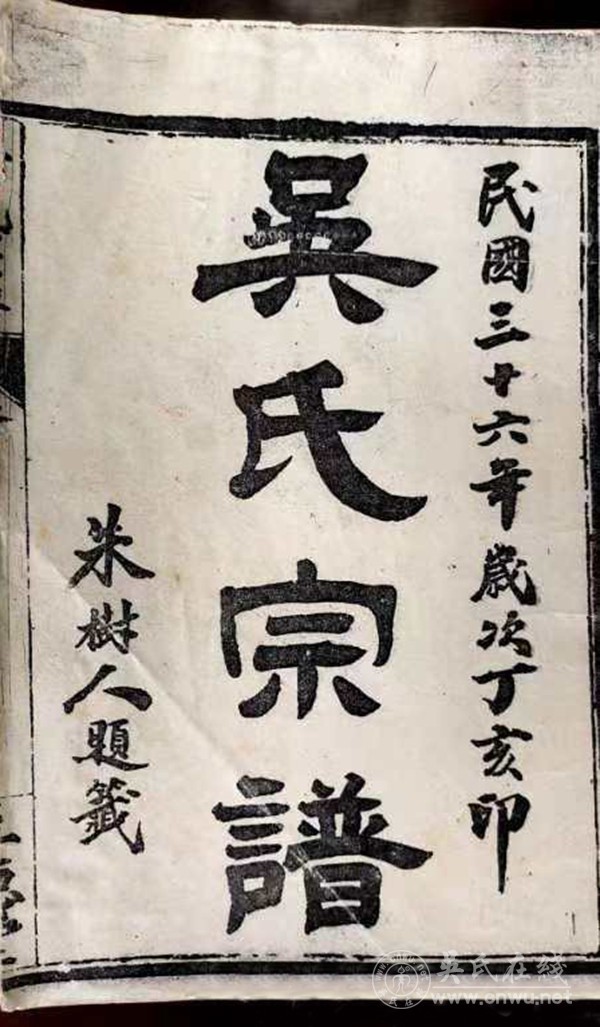 民國三十六年歲次丁亥印
吳氏宗譜
朱樹人題籤
吴氏在线
www.cnwu.net